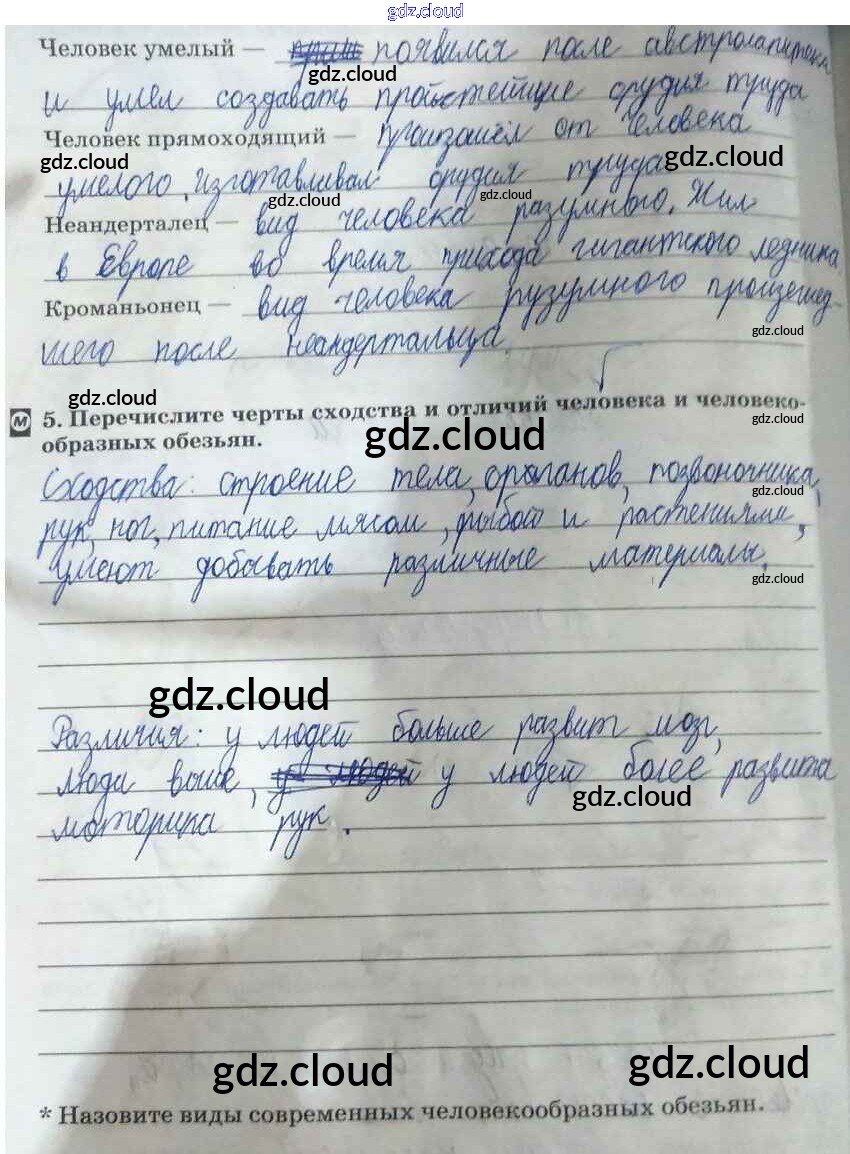 gdz.cloud
Человек умелый — появился после австролапитека
gdz.cloud
и умел создавать простейщие орудия труда
Человек прямоходящий — произашёл от человека
gdz.cloud gdz.cloud
умелого, изготавливал орудия труда
gdz.cloud gdz.cloud
Неандерталец — вид человека разумного. Жил
в Европе во время прихода гигантского ледника
Кроманьонец — вид человека рузумного произешед-
gdz.cloud
шего после неандертальца.
gdz.cloud
м 5. Перечислите черты сходства и отличий человека и человеко-
gdz.cloud
образных обезьян.
gdz.cloud
Сходства: строение тела, органов, позвоночника,
gdz.cloud
рук, ног, питание мясом, рыбой и растениями,
умеют добывать различные материалы.
gdz.cloud
gdz.cloud
Различия: у людей больше развит мозг,
люди выше, у людей у людей более развита
gdz.cloud
моторика рук.
gdz.cloud gdz.cloud
* Назовите виды современных человекообразных обезьян.